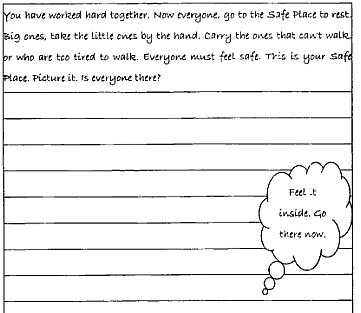 You have worked hard together. Now everyone, go to the Safe Place to rest.
Big ones, take the little ones by the hand. Carry the ones that can't walk,
or who are too tired to walk. Everyone must feel safe. This is your Safe
Place. Picture it. Is everyone there?
Feel it
inside. Go
there now.